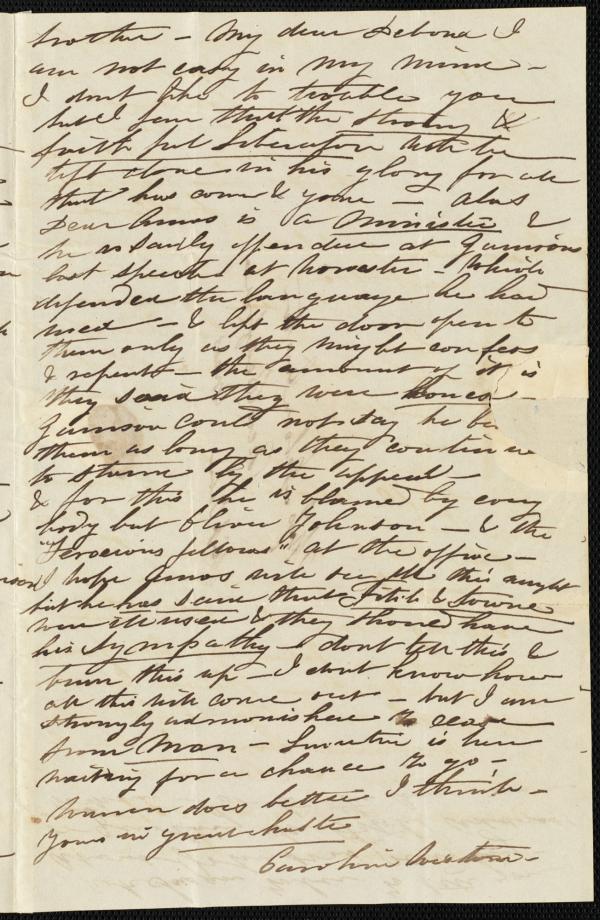 brother - My dear Debora I
am not easy in my mind -
I dont like to trouble you
but I fear that the strong &
faithful Liberator will be
left alone in his glory for all
that has come & gone - alas
Dear Amos is a Minister &
he is sadly offended at Garrisons
last speech at Worcester - Which
defended the language he had
used - & left the door open to
them only as they might confess
& repent - the amount of it is
they said they were honest -
Garrison could not say he be
them as long as they continue
to by the appeal
& for this he is blamed by every
body but Oliver Johnson - & the
"Ferocious fellows" at the office -
I hope Amos will see all this aright
but he has said that Fitch & Towne
were ill used & they should have
his sympathy - dont tell this &
burn this up - I dont know how
all this will come out - but I am
strongly admonished to cease
from Man - is here
waiting for a chance to go -
Warren does better I think -
Yours in great haste
Caroline Weston -